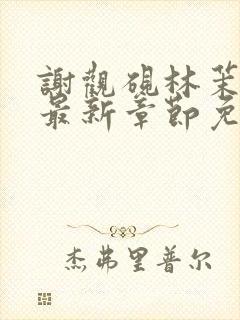 謝觀硯林茉
最新章節免
杰弗里普尔